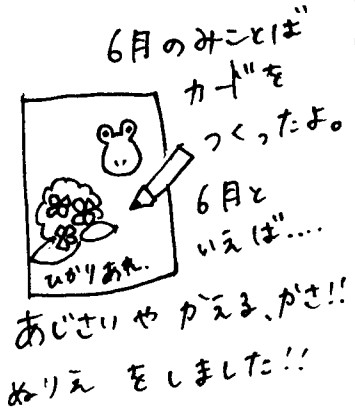 6月のみことば
カードを
つくったよ。
6月と
いえば....
ひかりあれ.
あじさいや かえる、かさ!!
ぬりえ をしました!!